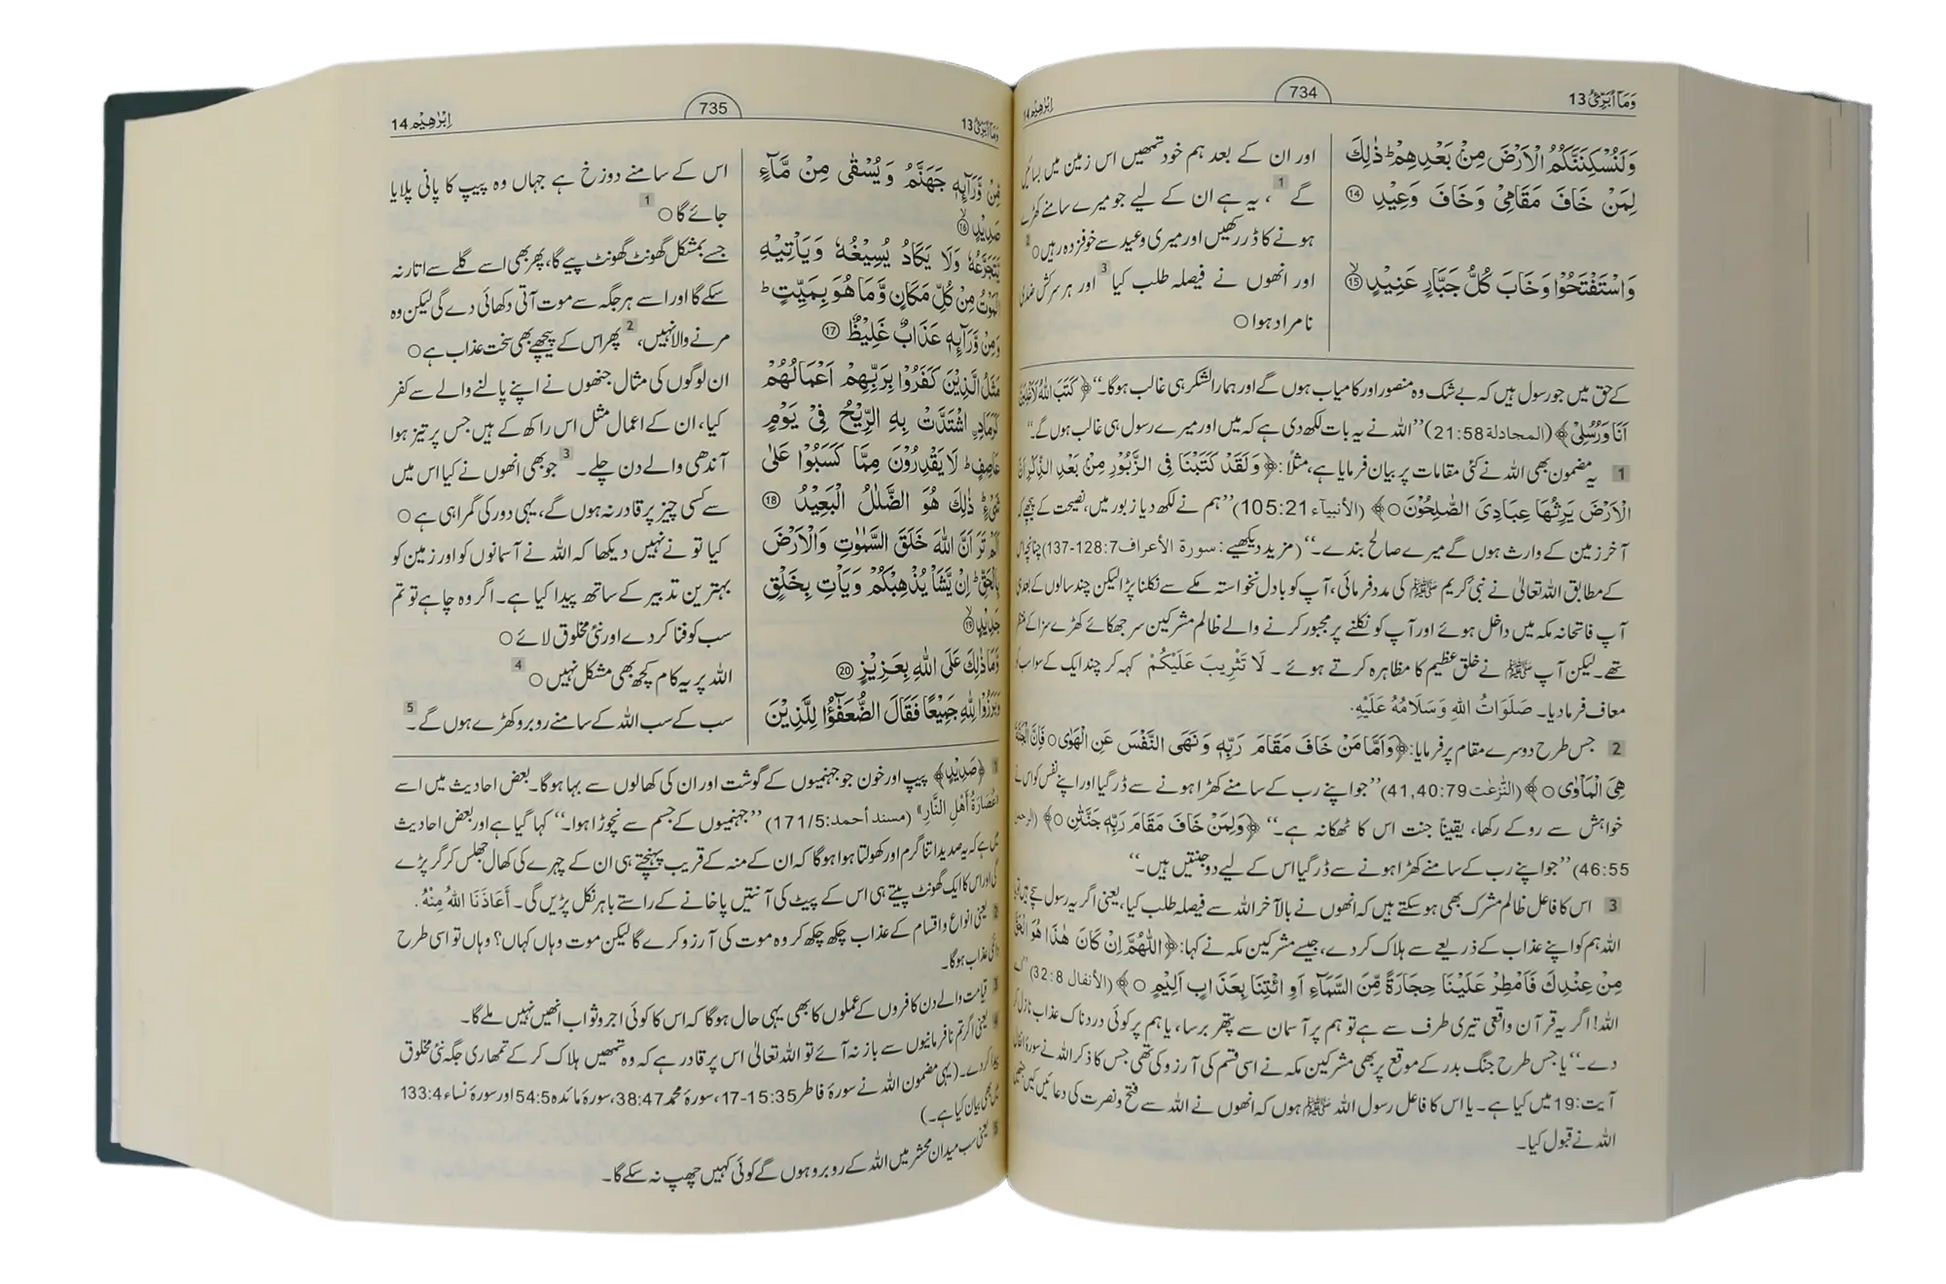 وَمَآ اُبَرِّئُ 13
734
اِبْرٰهِيْم 14
وَلَنُسْكِنَنَّكُمُ الْاَرْضَ مِنْۢ بَعْدِهِمْ ؕ ذٰلِكَ
لِمَنْ خَافَ مَقَامِيْ وَخَافَ وَعِيْدِ ⑭
وَاسْتَفْتَحُوْا وَخَابَ كُلُّ جَبَّارٍ عَنِيْدٍ ⑮
اور ان کے بعد ہم خود تمھیں اس زمین میں بسائیں
گے 1 ، یہ ہے ان کے لیے جو میرے سامنے کھڑے
ہونے کا ڈر رکھیں اور میری وعید سے خوفزدہ رہیں ○ 2
اور انھوں نے فیصلہ طلب کیا 3 اور ہر سرکش ضدی
نامراد ہوا ○
کے حق میں جو رسول ہیں کہ بے شک وہ منصور اور کامیاب ہوں گے اور ہمارا لشکر ہی غالب ہوگا۔‘‘ ﴿كَتَبَ اللّٰهُ لَاَغْلِبَنَّ
اَنَا وَرُسُلِيْ﴾ (المجادلة 21:58) ’’اللہ نے یہ بات لکھ دی ہے کہ میں اور میرے رسول ہی غالب ہوں گے۔‘‘
1 یہ مضمون بھی اللہ نے کئی مقامات پر بیان فرمایا ہے، مثلاً: ﴿وَلَقَدْ كَتَبْنَا فِي الزَّبُوْرِ مِنْۢ بَعْدِ الذِّكْرِ اَنَّ
الْاَرْضَ يَرِثُهَا عِبَادِيَ الصّٰلِحُوْنَ ○﴾ (الأنبيآء 105:21) ’’ہم نے لکھ دیا زبور میں، نصیحت کے پیچھے کہ
آخر زمین کے وارث ہوں گے میرے صالح بندے۔‘‘ (مزید دیکھیے: سورة الأعراف 128:7-137) چنانچہ اس
کے مطابق اللہ تعالیٰ نے نبیٔ کریم ﷺ کی مدد فرمائی، آپ کو بادل نخواستہ مکے سے نکلنا پڑا لیکن چند سالوں کے بعد ہی
آپ فاتحانہ مکہ میں داخل ہوئے اور آپ کو نکلنے پر مجبور کرنے والے ظالم مشرکین سر جھکائے کھڑے سزا کے منتظر
تھے۔ لیکن آپ ﷺ نے خلق عظیم کا مظاہرہ کرتے ہوئے ۔ لَا تَثْرِيبَ عَلَيْكُمْ کہہ کر چند ایک کے سوا سب کو
معاف فرما دیا۔ صَلَوَاتُ اللهِ وَسَلَامُهُ عَلَيْهِ.
2 جس طرح دوسرے مقام پر فرمایا: ﴿وَاَمَّا مَنْ خَافَ مَقَامَ رَبِّهٖ وَنَهَى النَّفْسَ عَنِ الْهَوٰى ○ فَاِنَّ الْجَنَّةَ
هِيَ الْمَاْوٰى ○﴾ (النّٰزعٰت 41,40:79) ’’جو اپنے رب کے سامنے کھڑا ہونے سے ڈر گیا اور اپنے نفس کو اس نے
خواہش سے روکے رکھا، یقیناً جنت اس کا ٹھکانہ ہے۔‘‘ ﴿وَلِمَنْ خَافَ مَقَامَ رَبِّهٖ جَنَّتٰنِ ○﴾ (الرحمٰن
46:55) ’’جو اپنے رب کے سامنے کھڑا ہونے سے ڈر گیا اس کے لیے دو جنتیں ہیں۔‘‘
3 اس کا فاعل ظالم مشرک بھی ہو سکتے ہیں کہ انھوں نے بالآخر اللہ سے فیصلہ طلب کیا، یعنی اگر یہ رسول سچے ہیں تو
اللہ ہم کو اپنے عذاب کے ذریعے سے ہلاک کر دے، جیسے مشرکین مکہ نے کہا: ﴿اللّٰهُمَّ اِنْ كَانَ هٰذَا هُوَ الْحَقَّ
مِنْ عِنْدِكَ فَاَمْطِرْ عَلَيْنَا حِجَارَةً مِّنَ السَّمَآءِ اَوِ ائْتِنَا بِعَذَابٍ اَلِيْمٍ ○﴾ (الأنفال 32:8) ’’اے
اللہ! اگر یہ قرآن واقعی تیری طرف سے ہے تو ہم پر آسمان سے پتھر برسا، یا ہم پر کوئی دردناک عذاب نازل کر
دے۔‘‘ یا جس طرح جنگ بدر کے موقع پر بھی مشرکین مکہ نے اسی قسم کی آرزو کی تھی جس کا ذکر اللہ نے سورۂ انفال
آیت: 19 میں کیا ہے۔ یا اس کا فاعل رسول اللہ ﷺ ہوں کہ انھوں نے اللہ سے فتح و نصرت کی دعائیں کیں جنھیں
اللہ نے قبول کیا۔
وَمَآ اُبَرِّئُ 13
735
اِبْرٰهِيْم 14
مِّنْ وَّرَآئِهٖ جَهَنَّمُ وَيُسْقٰى مِنْ مَّآءٍ
صَدِيْدٍ ⑯
يَّتَجَرَّعُهٗ وَلَا يَكَادُ يُسِيْغُهٗ وَيَاْتِيْهِ
الْمَوْتُ مِنْ كُلِّ مَكَانٍ وَّمَا هُوَ بِمَيِّتٍ ؕ
وَمِنْ وَّرَآئِهٖ عَذَابٌ غَلِيْظٌ ⑰
مَثَلُ الَّذِيْنَ كَفَرُوْا بِرَبِّهِمْ اَعْمَالُهُمْ
كَرَمَادِ ِۨاشْتَدَّتْ بِهِ الرِّيْحُ فِيْ يَوْمٍ
عَاصِفٍ ؕ لَا يَقْدِرُوْنَ مِمَّا كَسَبُوْا عَلٰى
شَيْءٍ ؕ ذٰلِكَ هُوَ الضَّلٰلُ الْبَعِيْدُ ⑱
اَلَمْ تَرَ اَنَّ اللّٰهَ خَلَقَ السَّمٰوٰتِ وَالْاَرْضَ
بِالْحَقِّ ؕ اِنْ يَّشَاْ يُذْهِبْكُمْ وَيَاْتِ بِخَلْقٍ
جَدِيْدٍ ⑲
وَّمَا ذٰلِكَ عَلَى اللّٰهِ بِعَزِيْزٍ ⑳
وَبَرَزُوْا لِلّٰهِ جَمِيْعًا فَقَالَ الضُّعَفٰٓؤُا لِلَّذِيْنَ
اس کے سامنے دوزخ ہے جہاں وہ پیپ کا پانی پلایا
جائے گا ○ 1
جسے بمشکل گھونٹ گھونٹ پیے گا، پھر بھی اسے گلے سے اتار نہ
سکے گا اور اسے ہر جگہ سے موت آتی دکھائی دے گی لیکن وہ
مرنے والا نہیں، 2 پھر اس کے پیچھے بھی سخت عذاب ہے ○
ان لوگوں کی مثال جنھوں نے اپنے پالنے والے سے کفر
کیا، ان کے اعمال مثل اس راکھ کے ہیں جس پر تیز ہوا
آندھی والے دن چلے۔ 3 جو بھی انھوں نے کیا اس میں
سے کسی چیز پر قادر نہ ہوں گے، یہی دور کی گمراہی ہے ○
کیا تو نے نہیں دیکھا کہ اللہ نے آسمانوں کو اور زمین کو
بہترین تدبیر کے ساتھ پیدا کیا ہے۔ اگر وہ چاہے تو تم
سب کو فنا کر دے اور نئی مخلوق لائے ○
اللہ پر یہ کام کچھ بھی مشکل نہیں ○ 4
سب کے سب اللہ کے سامنے روبرو کھڑے ہوں گے۔ 5
1 ﴿صَدِيْدٍ﴾ پیپ اور خون جو جہنمیوں کے گوشت اور ان کی کھالوں سے بہا ہوگا۔ بعض احادیث میں اسے
«عُصَارَةُ أَهْلِ النَّارِ» (مسند أحمد: 171/5) ’’جہنمیوں کے جسم سے نچوڑا ہوا۔‘‘ کہا گیا ہے اور بعض احادیث
میں ہے کہ یہ صدید اتنا گرم اور کھولتا ہوا ہوگا کہ ان کے منہ کے قریب پہنچتے ہی ان کے چہرے کی کھال جھلس کر گر پڑے
گی اور اس کا ایک گھونٹ پیتے ہی اس کے پیٹ کی آنتیں پاخانے کے راستے باہر نکل پڑیں گی۔ أَعَاذَنَا اللهُ مِنْهُ .
2 یعنی انواع و اقسام کے عذاب چکھ چکھ کر وہ موت کی آرزو کرے گا لیکن موت وہاں کہاں؟ وہاں تو اسی طرح
دائمی عذاب ہوگا۔
3 قیامت والے دن کافروں کے عملوں کا بھی یہی حال ہوگا کہ اس کا کوئی اجر و ثواب انھیں نہیں ملے گا۔
4 یعنی اگر تم نافرمانیوں سے باز نہ آئے تو اللہ تعالیٰ اس پر قادر ہے کہ وہ تمھیں ہلاک کر کے تمھاری جگہ نئی مخلوق
پیدا کر دے۔ (یہی مضمون اللہ نے سورۂ فاطر 15:35-17، سورۂ محمد 38:47، سورۂ مائدہ 54:5 اور سورۂ نساء 133:4
میں بھی بیان کیا ہے۔)
5 یعنی سب میدان محشر میں اللہ کے روبرو ہوں گے کوئی کہیں چھپ نہ سکے گا۔